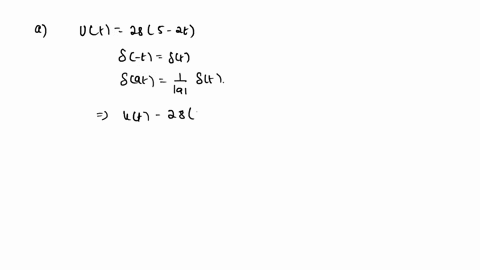 a) U(t) = 2δ(5-2t)
δ(-t) = δ(t)
δ(at) = 1/|a| δ(t).
=) u(t) - 2δ(